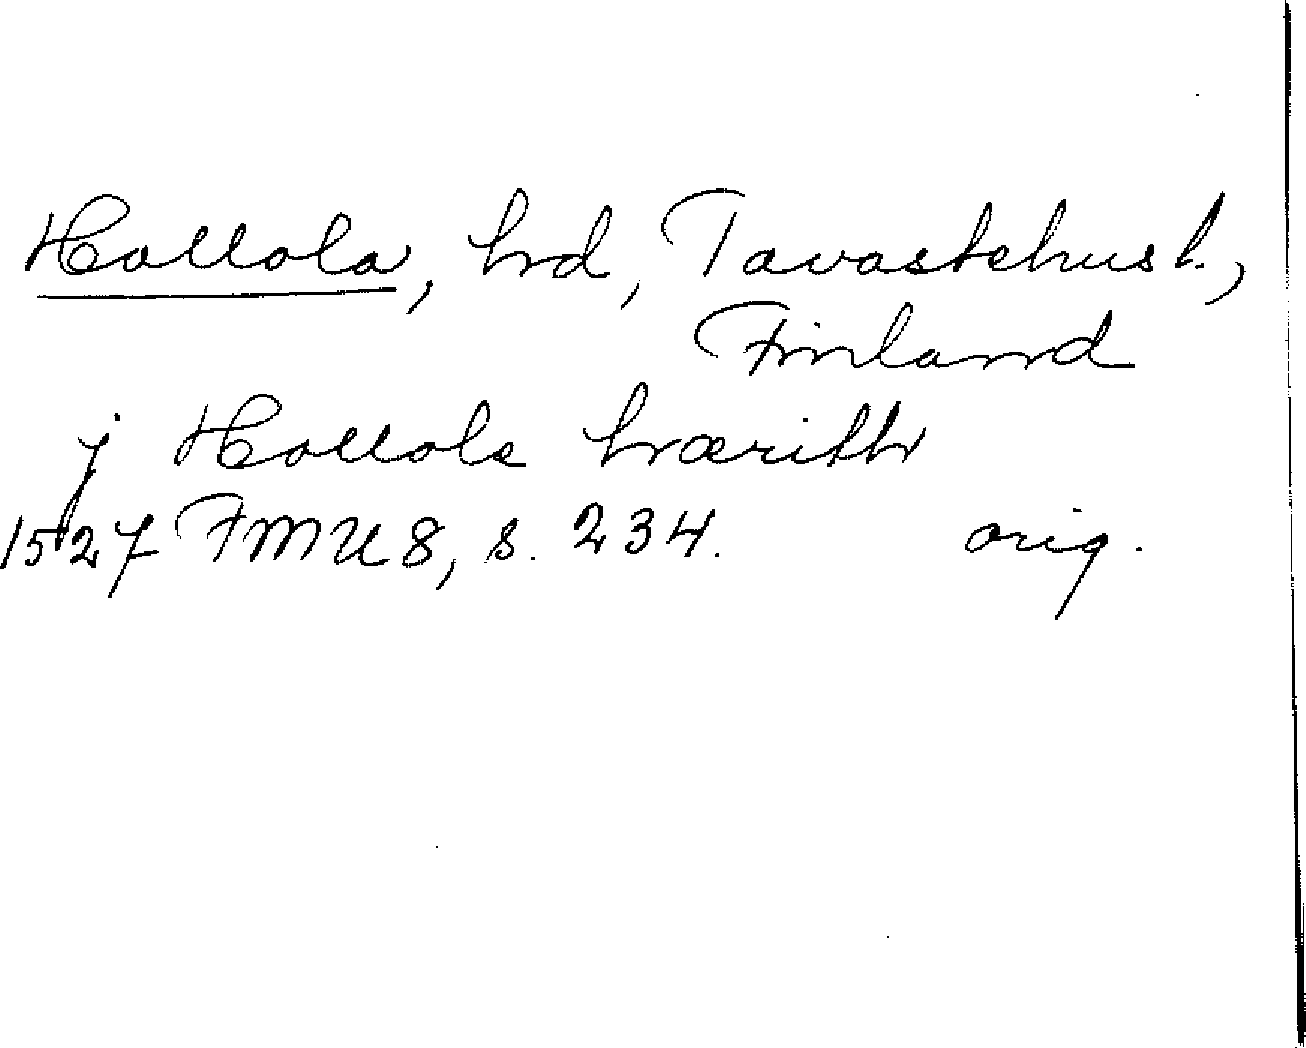 Hollola, hrd, Tavastehus l.,
Finland
j Hollola hærith
1527 FMU 8, s. 234. orig.